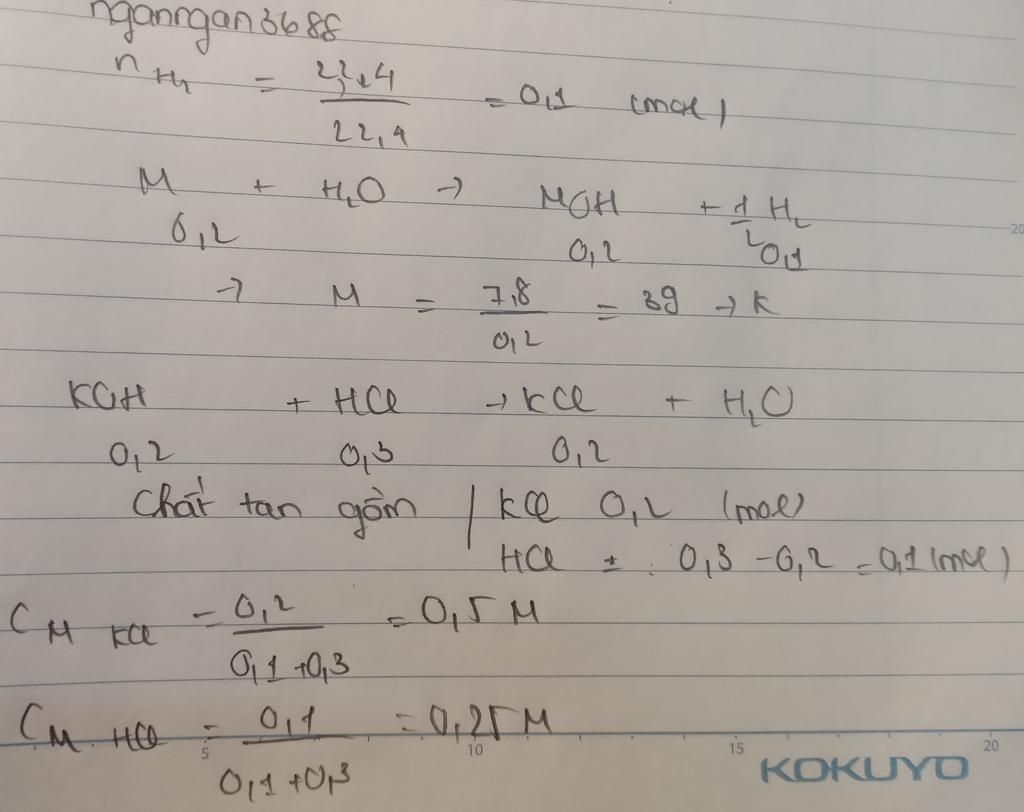 nganngan3688
n H₂ = 2,24 / 22,4 = 0,1 (mol)
M + H₂O → MOH + 1/2 H₂
0,2 0,2 0,1
→ M = 7,8 / 0,2 = 39 → K
KOH + HCl → KCl + H₂O
0,2 0,3 0,2
Chất tan gồm | KCl 0,2 (mol)
HCl = : 0,3 - 0,2 = 0,1 (mol)
CM KCl = 0,2 / 0,1 + 0,3 = 0,5 M
CM HCl = 0,1 / 0,1 + 0,3 = 0,25 M
5 10 15 20
KOKUYO
20